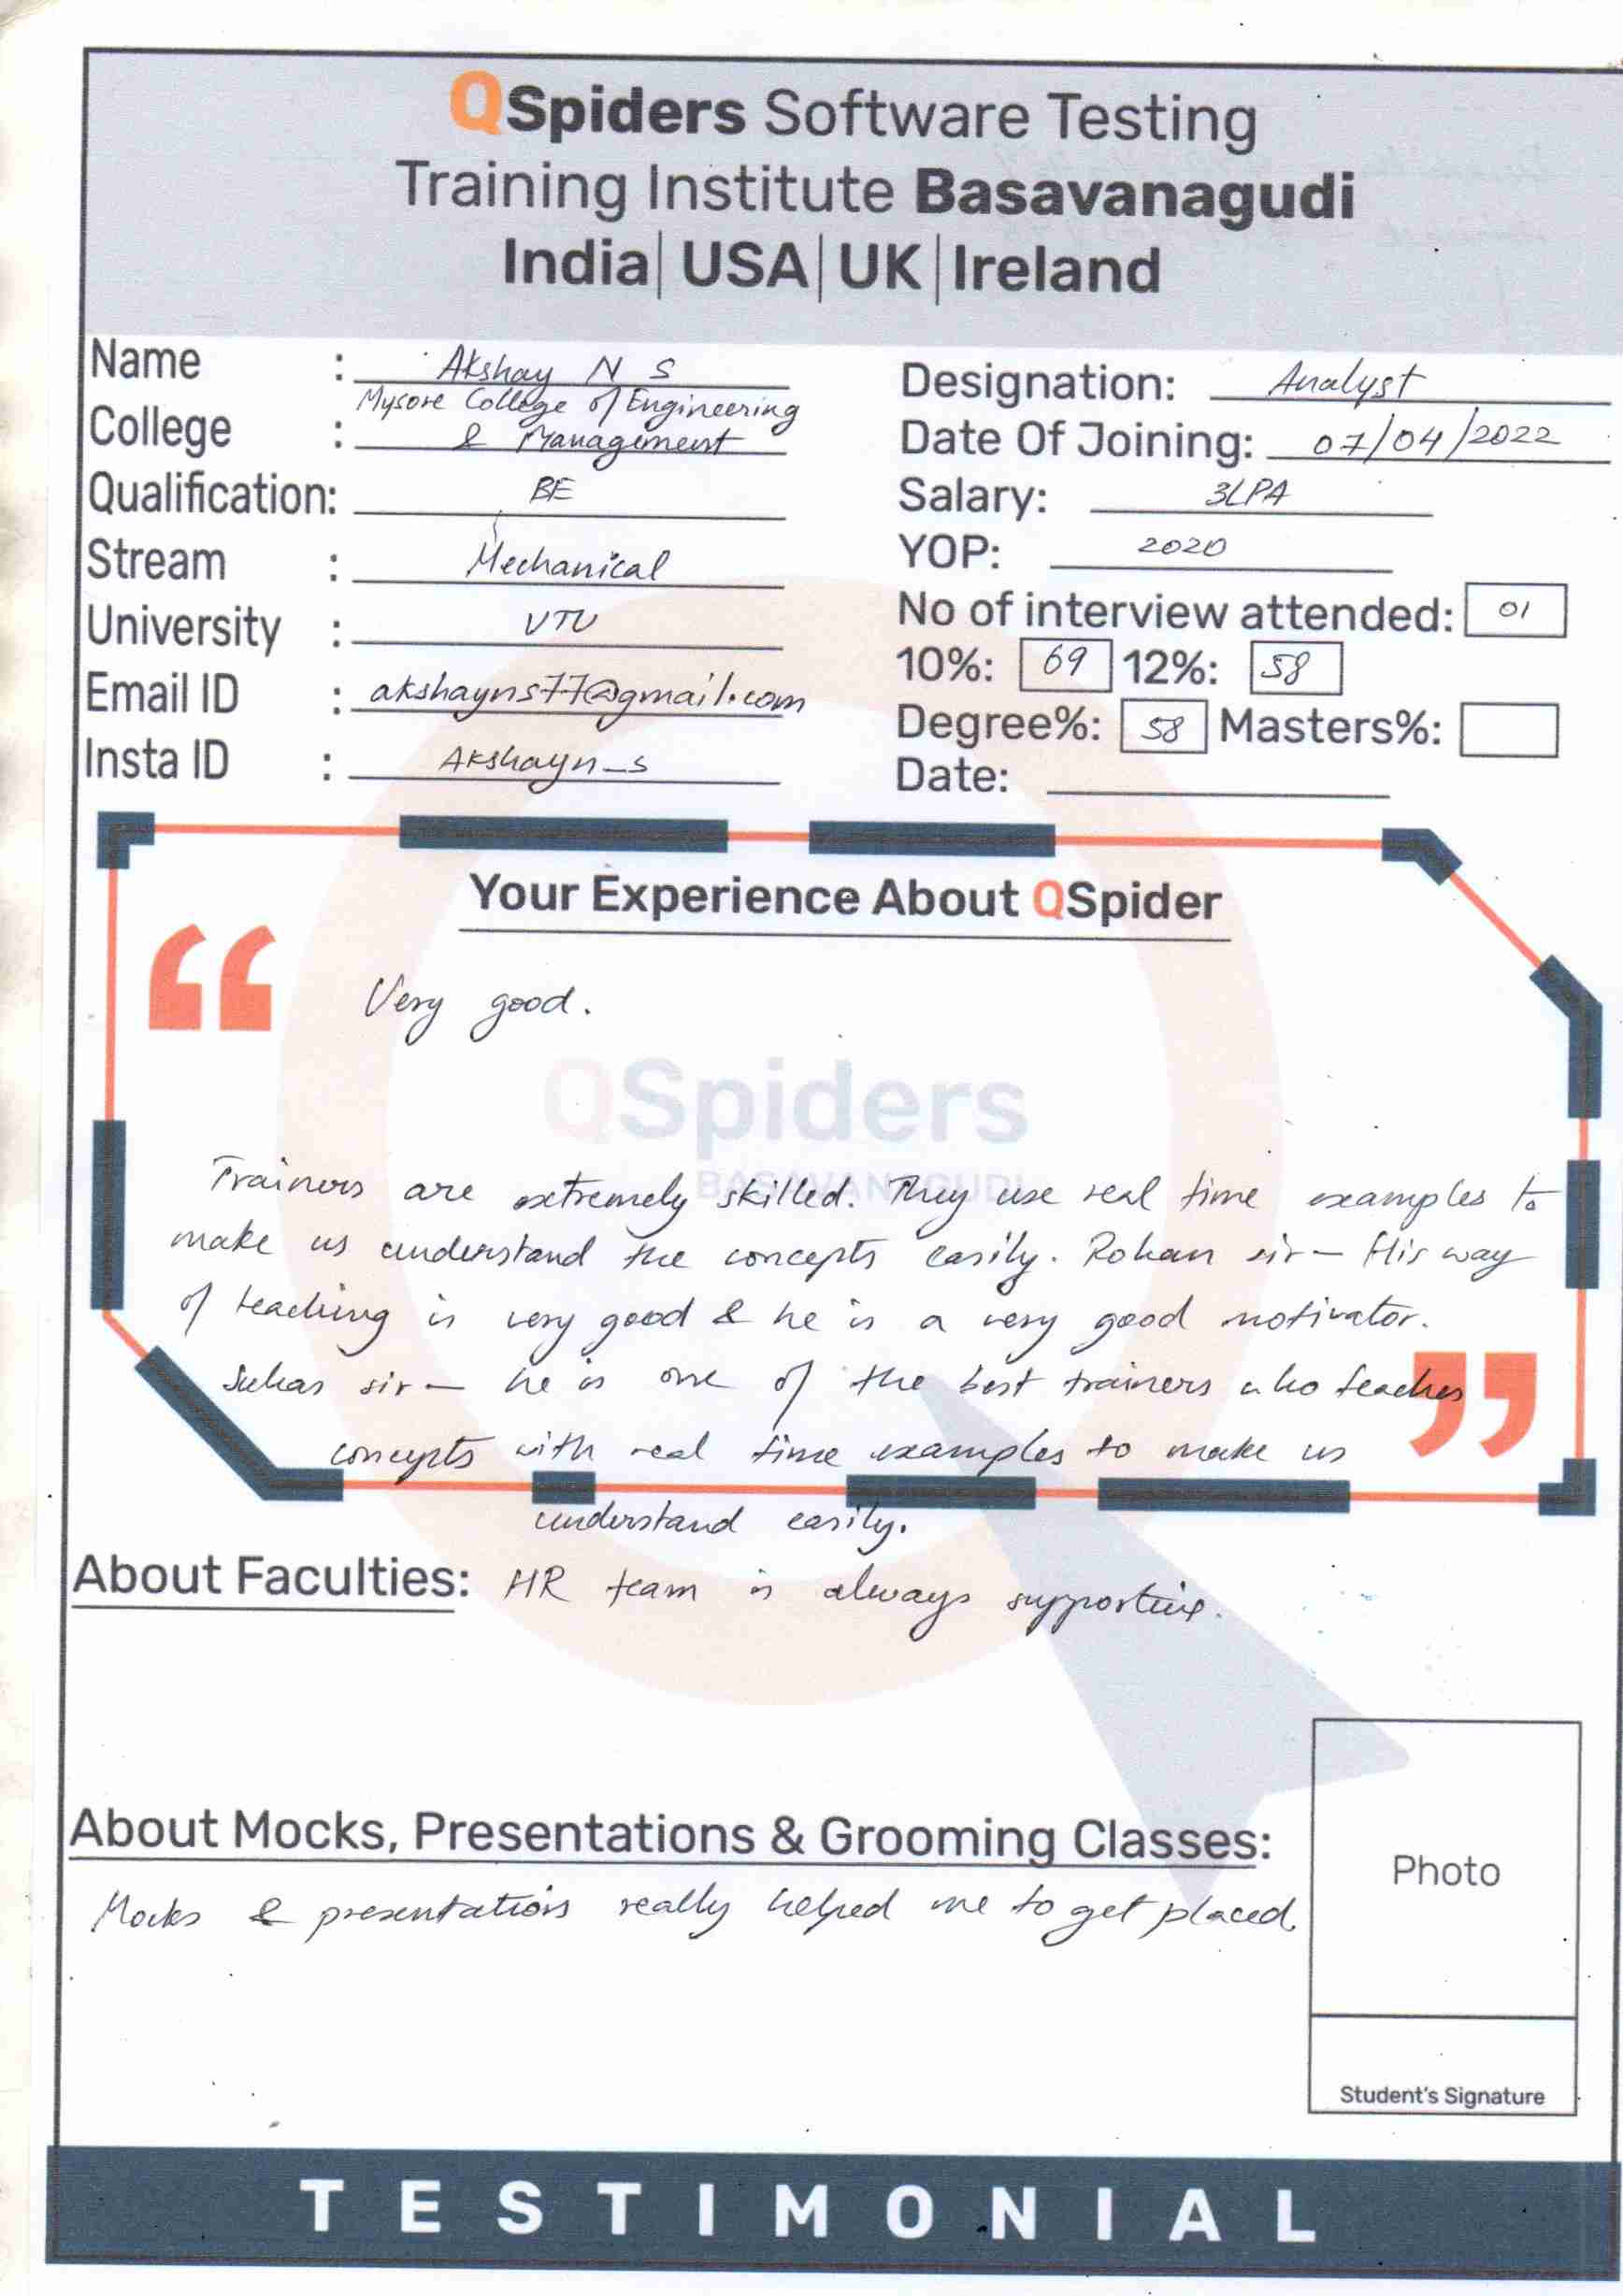 QSpiders Software Testing
Training Institute Basavanagudi
India| USA| UK| Ireland
Name : Akshay N S
College : Mysore College of Engineering
& Management
Qualification: BE
Stream : Mechanical
University : VTU
Email ID : akshayns77@gmail.com
Insta ID : Akshayn_s
Designation: Analyst
Date Of Joining: 07/04/2022
Salary: 3LPA
YOP: 2020
No of interview attended: 01
10%: 69 12%: 58
Degree%: 58 Masters%:
Date:
Your Experience About QSpider
“
Very good.
QSpiders
BASAVANAGUDI
Trainers are extremely skilled. They use real time examples to
make us understand the concepts easily. Rohan sir – His way
of teaching is very good & he is a very good motivator.
Suhas sir – he is one of the best trainers who teaches
concepts with real time examples to make us
”
understand easily.
About Faculties: HR team is always supportive.
About Mocks, Presentations & Grooming Classes:
Mocks & presentations really helped me to get placed.
Photo
Student's Signature
TESTIMONIAL